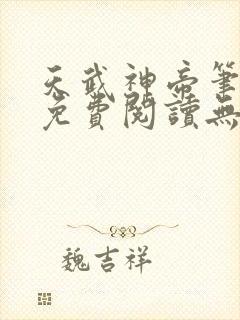 天武神帝筆
免費閱讀無
魏吉祥